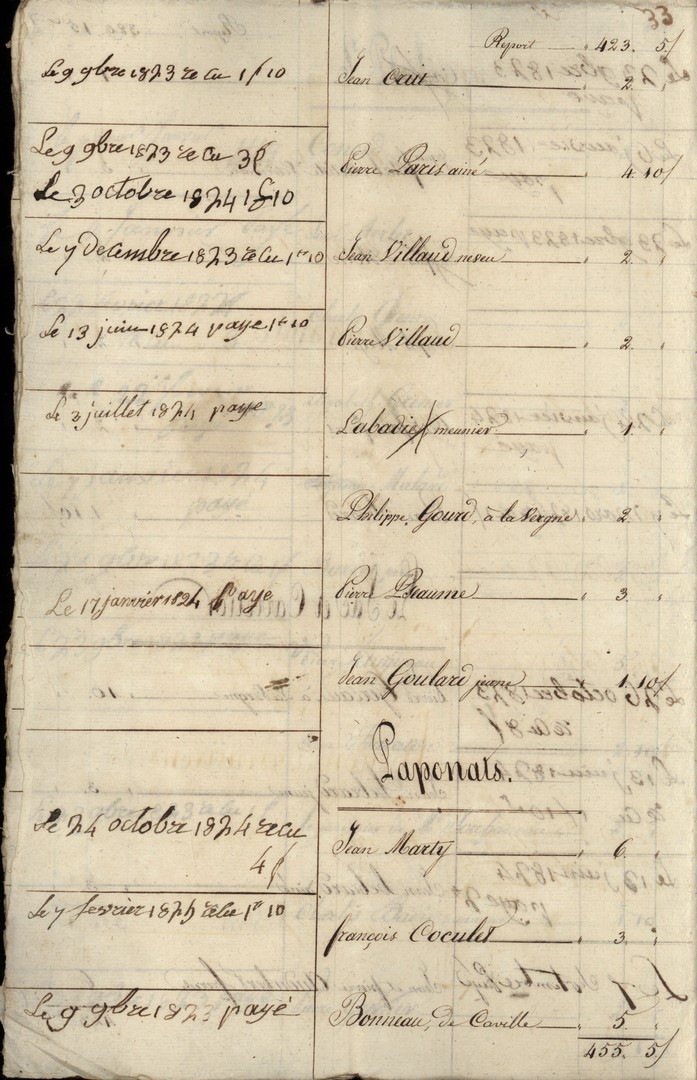 33
Report " 423. 5/
Le 9 9bre 1823 recu 1/10 Jean Crut " 2. "
Le 9 9bre 1823 recu 3f
Le 3 octobre 1824 1f10 Pierre Paris ainé " 4. 10/
Le 7 decembre 1823 recu 1fr 10 Jean Villaud neveu " 2. "
Le 13 juin 1824 paye 1fr 10 Pierre Villaud " 2. "
Le 3 juillet 1824 paye Labadie meunier " 1. "
Philippe Gourd, à la Vergne 2. "
Le 17 janvier 1824 Paye Pierre Pleaume " 3. "
Jean Goulard jeune 1. 10/
Paponats.
Le 24 octobre 1824 recu
4f Jean Marty " 6. "
Le 7 fevrier 1825 recu 1fr 10 françois Coculet " 3. "
Le 9 9bre 1823 payé Bonneau, de Caville " 5 "
455. 5/